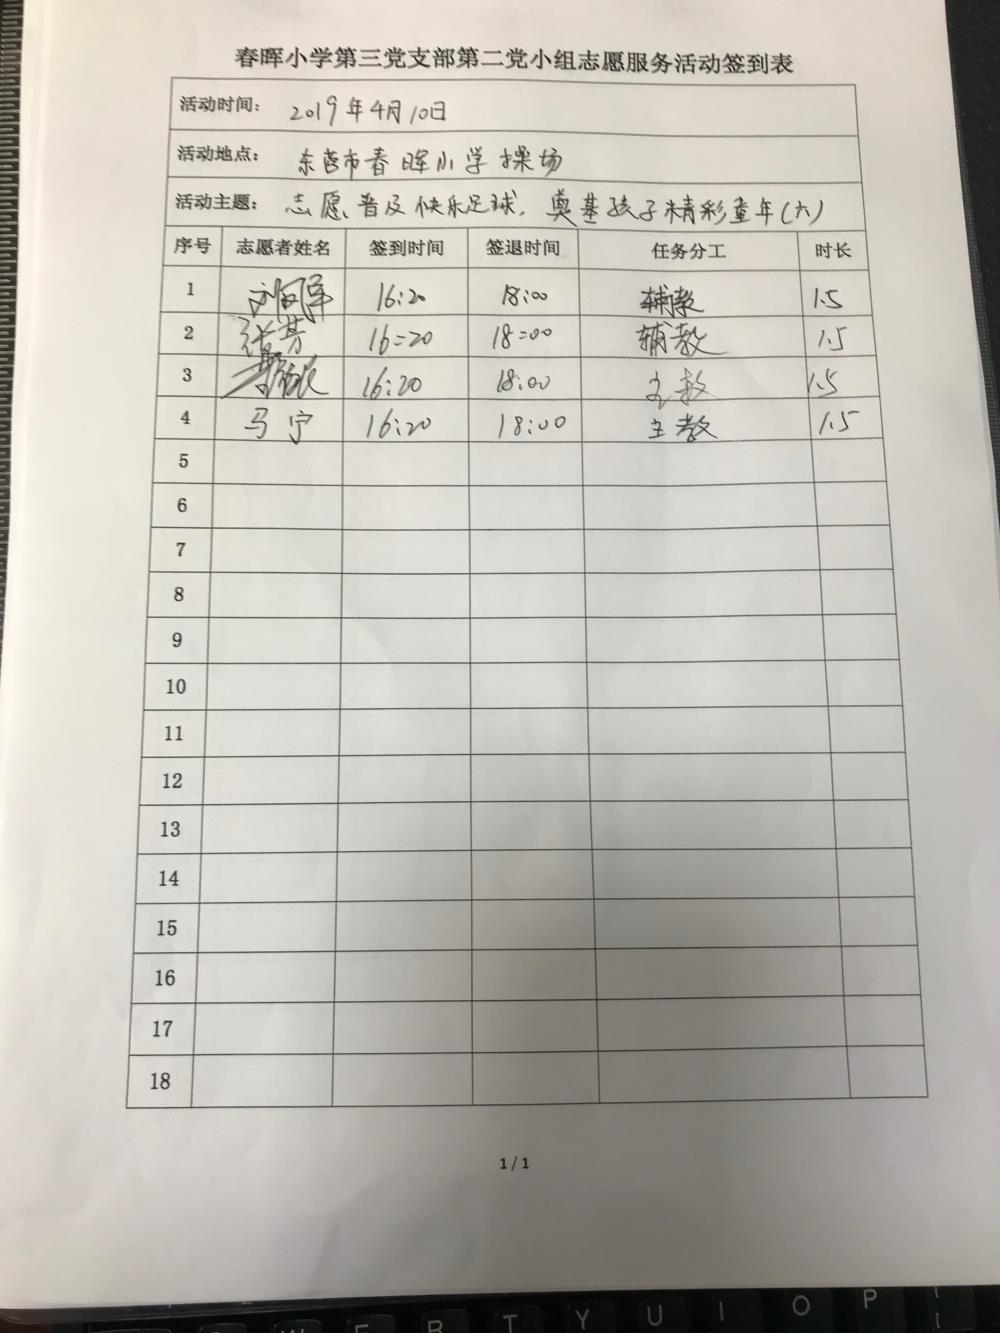 春晖小学第三党支部第二党小组志愿服务活动签到表
活动时间： 2019年4月10日
活动地点： 东营市春晖小学操场
活动主题： 志愿普及快乐足球，奠基孩子精彩童年(六)
序号 志愿者姓名 签到时间 签退时间 任务分工 时长
1 16:20 18:00 辅教 1.5
2 张芳 16:20 18:00 辅教 1.5
3 16:20 18:00 主教 1.5
4 马宁 16:20 18:00 主教 1.5
5
6
7
8
9
10
11
12
13
14
15
16
17
18
1 / 1
W E R T Y U I O P